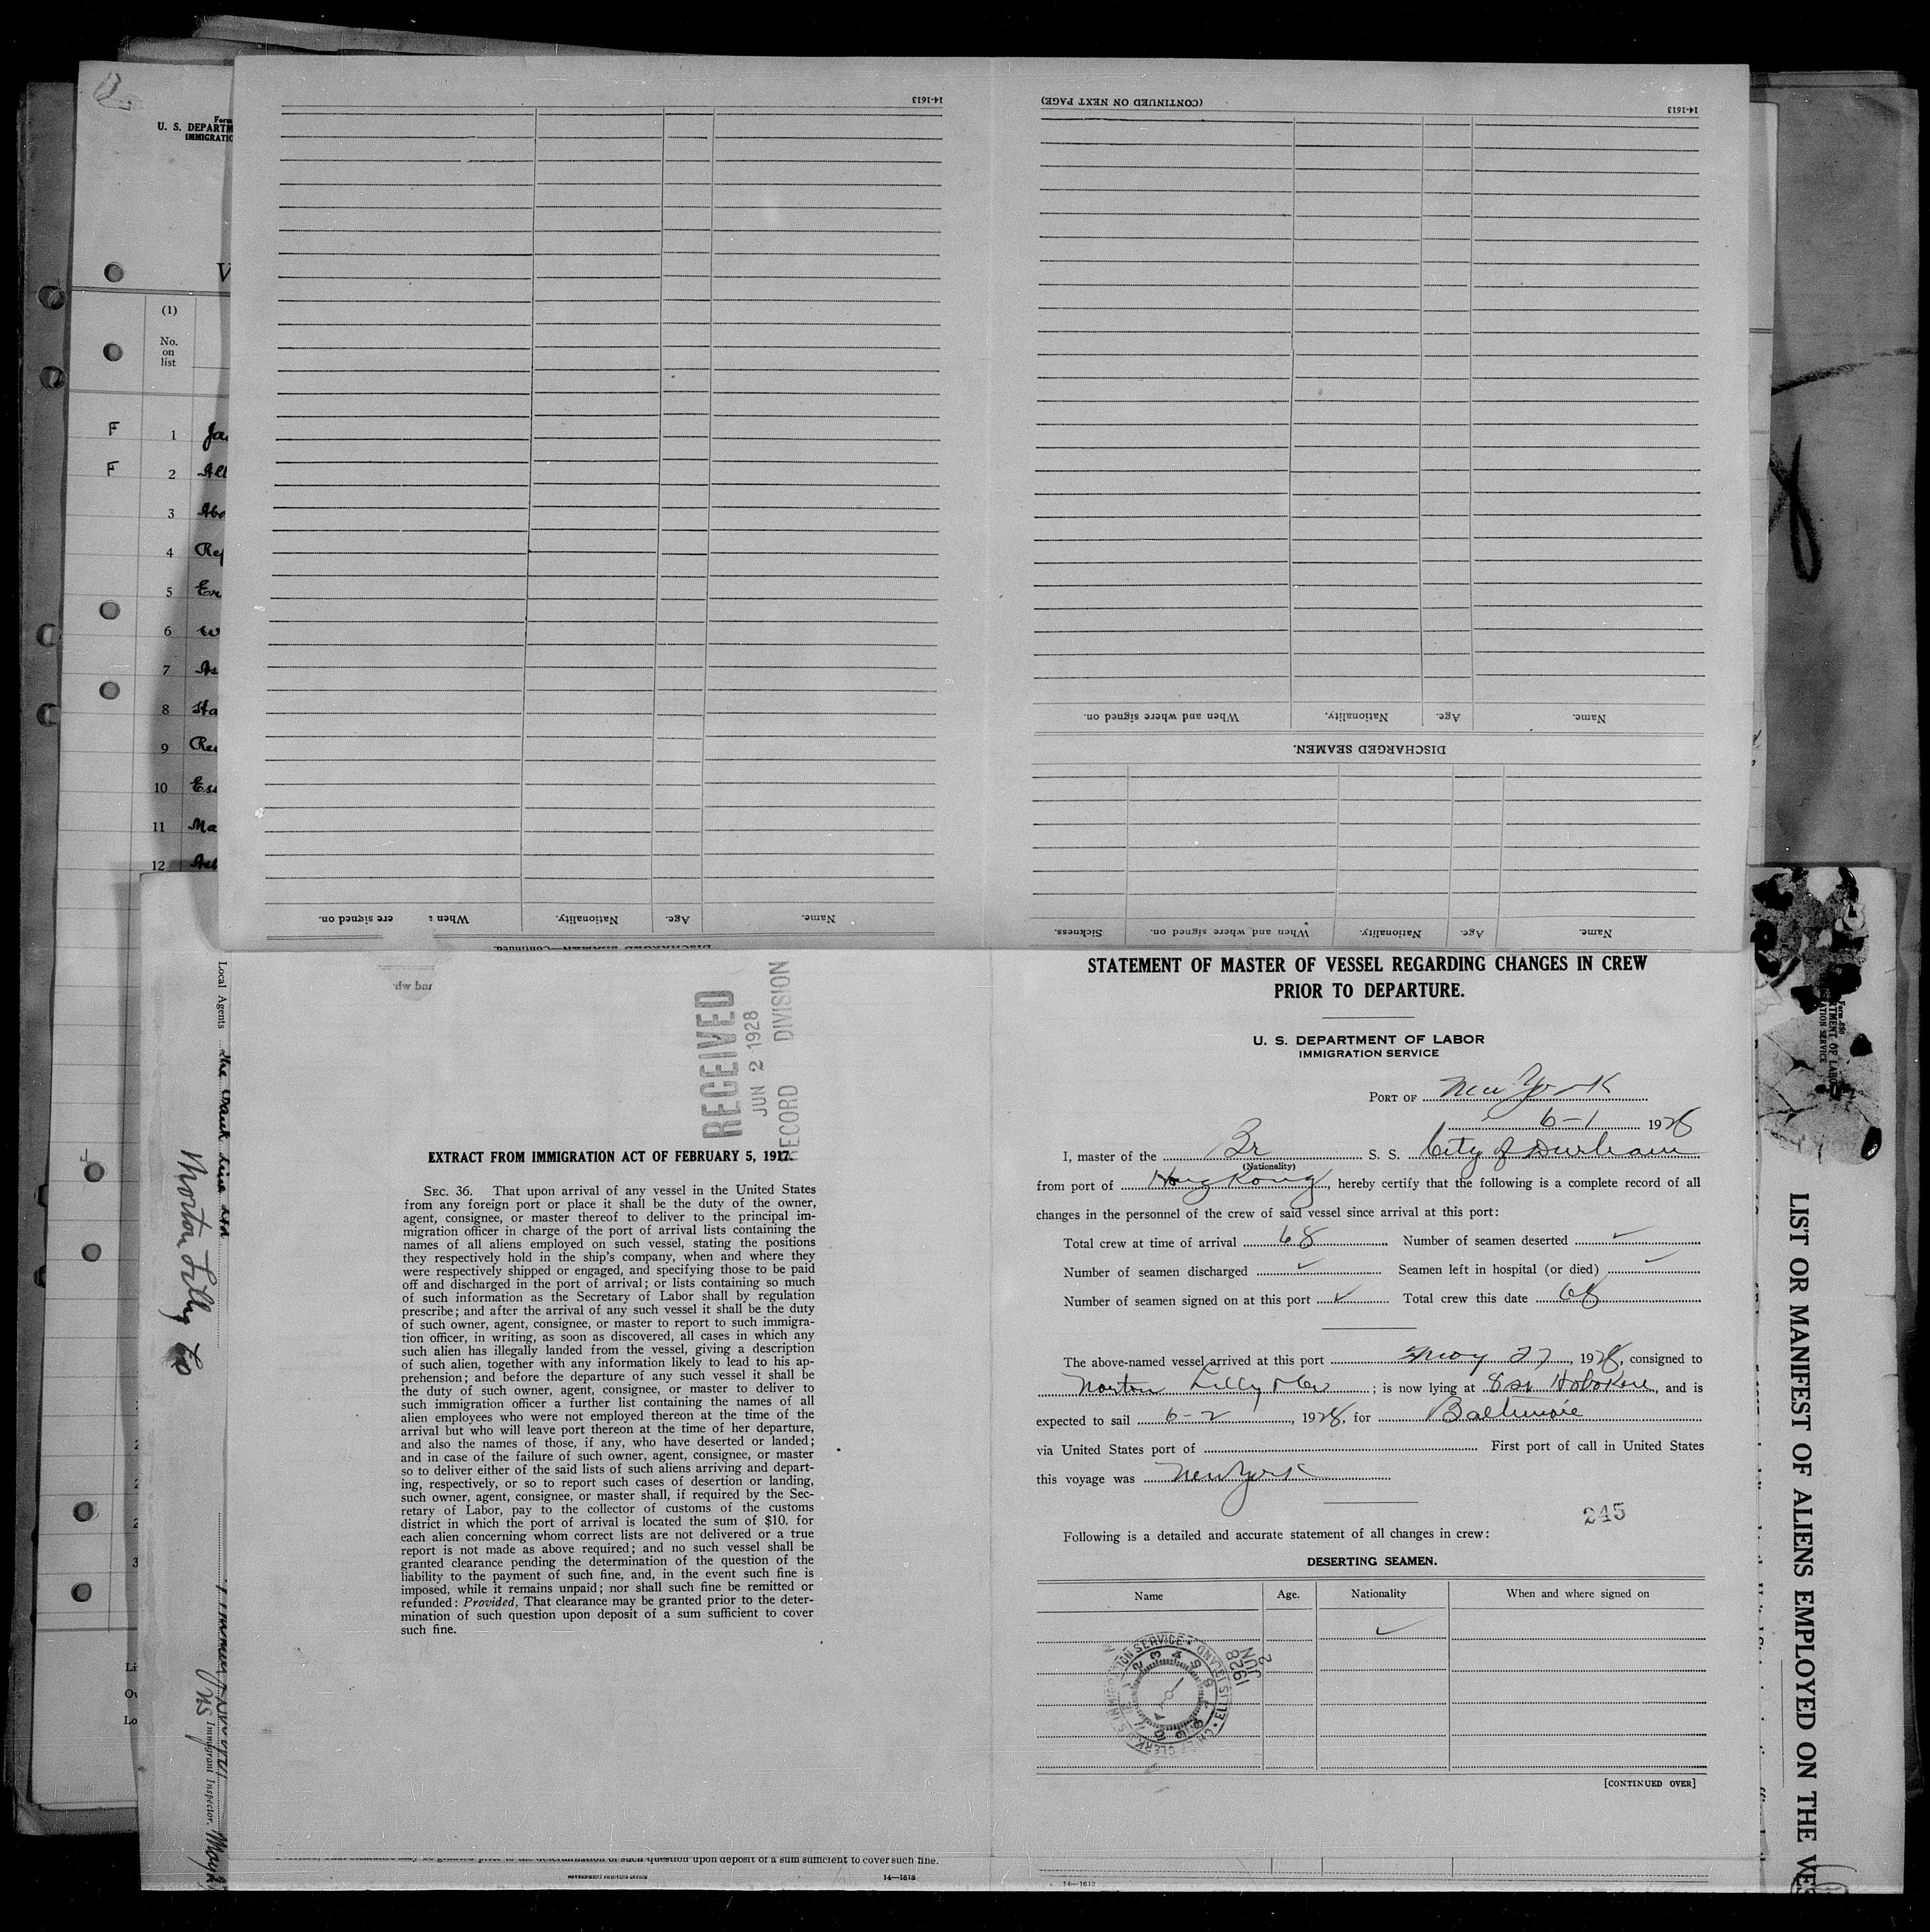 Form
U. S. DEPARTM
IMMIGRATIO
(1)
No.
on
list
F 1 Ja
F 2 All
3 Abo
4 Rep
5 Er
6 W
7 As
8 Ha
9 Re
10 Es
11 Ma
12
14-1613
(CONTINUED ON NEXT PAGE)
14-1613
When and where signed on. Nationality. Age. Name.
DISCHARGED SEAMEN.
Sickness. When and where signed on. Nationality. Age. Name.
ere signed on. When a Nationality. Age. Name.
DISCHARGED SEAMEN—Continued.
and wh
Local Agents
Norton Lilly Co
Immigrant Inspector.
RECEIVED
JUN 2 1928
RECORD DIVISION
EXTRACT FROM IMMIGRATION ACT OF FEBRUARY 5, 1917.
SEC. 36. That upon arrival of any vessel in the United States
from any foreign port or place it shall be the duty of the owner,
agent, consignee, or master thereof to deliver to the principal im-
migration officer in charge of the port of arrival lists containing the
names of all aliens employed on such vessel, stating the positions
they respectively hold in the ship's company, when and where they
were respectively shipped or engaged, and specifying those to be paid
off and discharged in the port of arrival; or lists containing so much
of such information as the Secretary of Labor shall by regulation
prescribe; and after the arrival of any such vessel it shall be the duty
of such owner, agent, consignee, or master to report to such immigra-
tion officer, in writing, as soon as discovered, all cases in which any
such alien has illegally landed from the vessel, giving a description
of such alien, together with any information likely to lead to his ap-
prehension; and before the departure of any such vessel it shall be
the duty of such owner, agent, consignee, or master to deliver to
such immigration officer a further list containing the names of all
alien employees who were not employed thereon at the time of the
arrival but who will leave port thereon at the time of her departure,
and also the names of those, if any, who have deserted or landed;
and in case of the failure of such owner, agent, consignee, or master
so to deliver either of the said lists of such aliens arriving and depart-
ing, respectively, or so to report such cases of desertion or landing,
such owner, agent, consignee, or master shall, if required by the Sec-
retary of Labor, pay to the collector of customs of the customs
district in which the port of arrival is located the sum of $10. for
each alien concerning whom correct lists are not delivered or a true
report is not made as above required; and no such vessel shall be
granted clearance pending the determination of the question of the
liability to the payment of such fine, and, in the event such fine is
imposed, while it remains unpaid; nor shall such fine be remitted or
refunded: Provided, That clearance may be granted prior to the deter-
mination of such question upon deposit of a sum sufficient to cover
such fine.
question upon deposit of a sum sufficient to cover such fine.
GOVERNMENT PRINTING OFFICE 14—1613
STATEMENT OF MASTER OF VESSEL REGARDING CHANGES IN CREW
PRIOR TO DEPARTURE.
U. S. DEPARTMENT OF LABOR
IMMIGRATION SERVICE
PORT OF New York
6-1 1928
I, master of the Br S. S. City of Durham
(Nationality)
from port of Hong Kong, hereby certify that the following is a complete record of all
changes in the personnel of the crew of said vessel since arrival at this port:
Total crew at time of arrival 68 Number of seamen deserted ✓
Number of seamen discharged ✓ Seamen left in hospital (or died) ✓
Number of seamen signed on at this port ✓ Total crew this date 68
The above-named vessel arrived at this port May 27, 1928, consigned to
Norton Lilly & Co; is now lying at 8 St Hoboken, and is
expected to sail 6-2, 1928, for Baltimore
via United States port of First port of call in United States
this voyage was New York
245
Following is a detailed and accurate statement of all changes in crew:
DESERTING SEAMEN.
Name Age. Nationality When and where signed on
✓
1928 JUN 2
[CONTINUED OVER]
14—1613
LIST OR MANIFEST OF ALIENS EMPLOYED ON THE VES